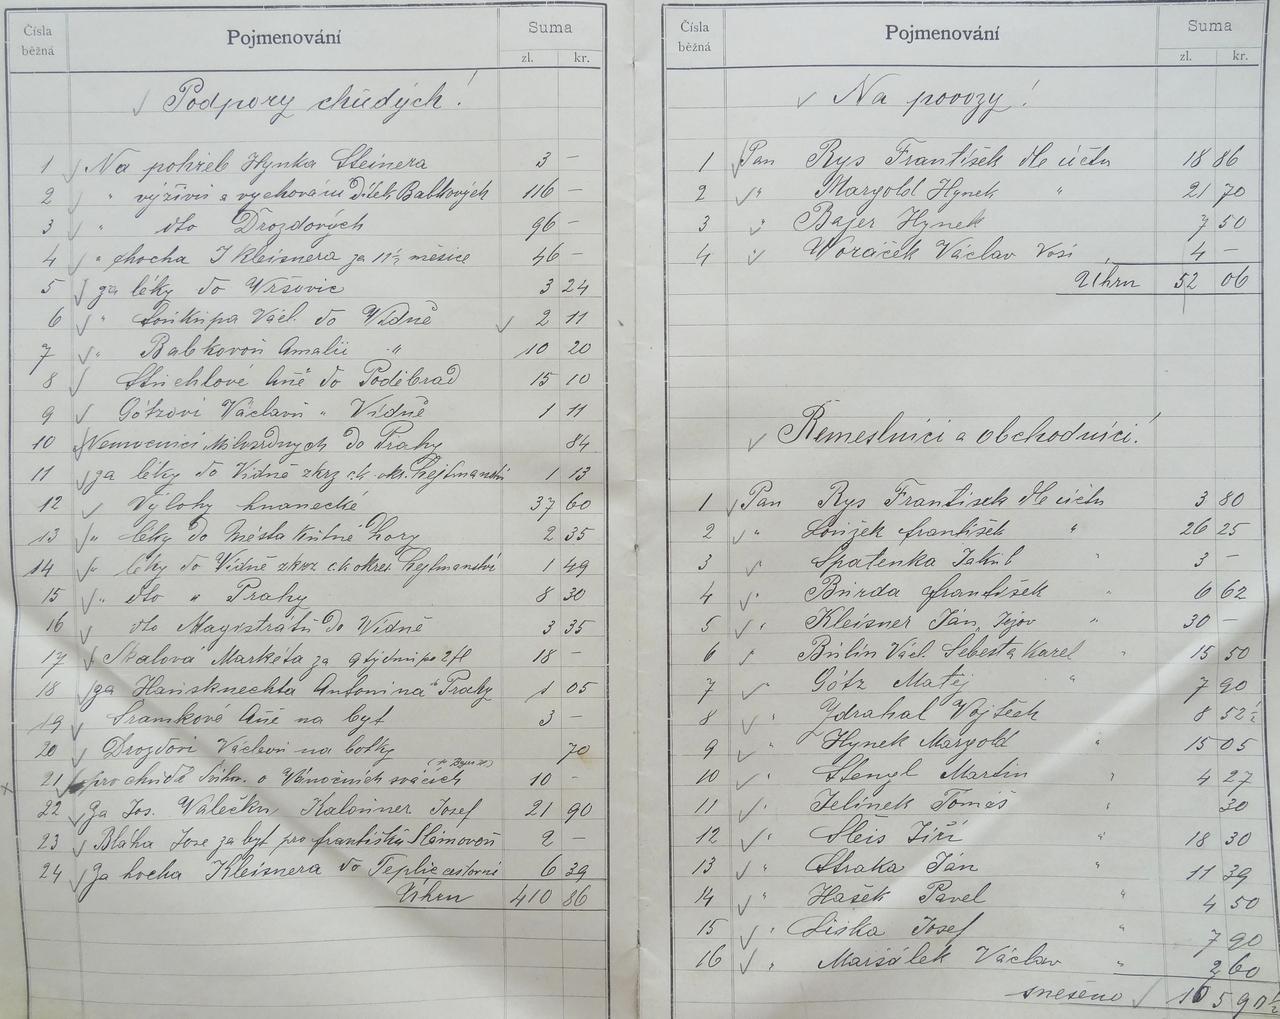 Čísla běžná Pojmenování Suma zl. kr.
Podpory chudých!
1 Na pohřeb Hynka Steinera 3 –
2 " výživu a vychování Dítek Babkových 116 –
3 " dto Drozdových 96 –
4 " hocha J Kleisnera za 11½ měsíce 46 –
5 za léky do Vršovic 3 24
6 " Václ. do Vídně 2 11
7 " Babkovou Amalii " 10 20
8 Aně do Poděbrad 15 10
9 Götzovi Václavu " Vídně 1 11
10 Nemocnici Milosrdných do Prahy 84
11 za léky do Vídně zkrz c.k. okr. Hejtmanství 1 13
12 Výlohy hnanecké 37 60
13 " léky do Města Kutné Hory 2 35
14 " léky do Vídně zkrz c.k. okres. Hejtmanství 1 49
15 " dto " Prahy 8 30
16 dto Magistrátu do Vídně 3 35
17 Skalová Markéta za 9 týdnů po 2 fl 18 –
18 za Hausknechta Antonina " Prahy 1 05
19 Šramkové Aně na byt 3 –
20 Drozdovi Václavu na botky 70
21 pro chudé o Vánočních svácích 10 –
22 Za Jos. Walečku Kalouner Josef 21 90
23 Bláha Jose za byt pro františku Slámovou 2 –
24 Za hocha Kleisnera do Teplic cestovní 6 39
Úhrn 410 86
Čísla běžná Pojmenování Suma zl. kr.
Na povozy!
1 Pan Rys František dle účtu 18 86
2 " Margold Hynek " 21 70
3 " Bajer Hynek 7 50
4 " Woráček Václav Vosí 4 –
Úhrn 52 06
Řemeslníci a obchodníci!
1 Pan Rys František dle účtu 3 80
2 " Loužek františek " 26 25
3 " Spatenka Jakub " 3 –
4 " Burda františek " 6 62
5 " Kleisner Ján, " 30 –
6 " Václ. Šebesta Karel " 15 50
7 " Götz Matěj " 7 90
8 " Zdrahal Vojtěch 8 52½
9 " Hynek Margold " 15 05
10 " Stengl Martin " 4 27
11 " Jelinek Tomáš " 30
12 " Jiří " 18 30
13 " Straka Ján " 11 39
14 " Hašek Pavel " 4 50
15 " Liska Josef " 7 90
16 " Maršálek Václav " 2 60
snešeno 165 90½